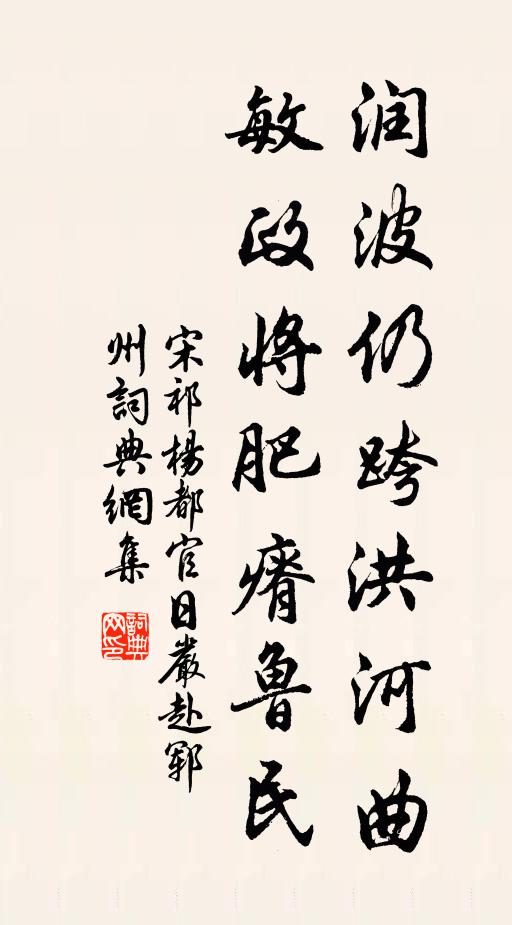 润波仍跨洪河曲
敏政将肥瘠鲁民
宋祁楊都官日嚴赴鄆
州詞典網集
詞典
网印